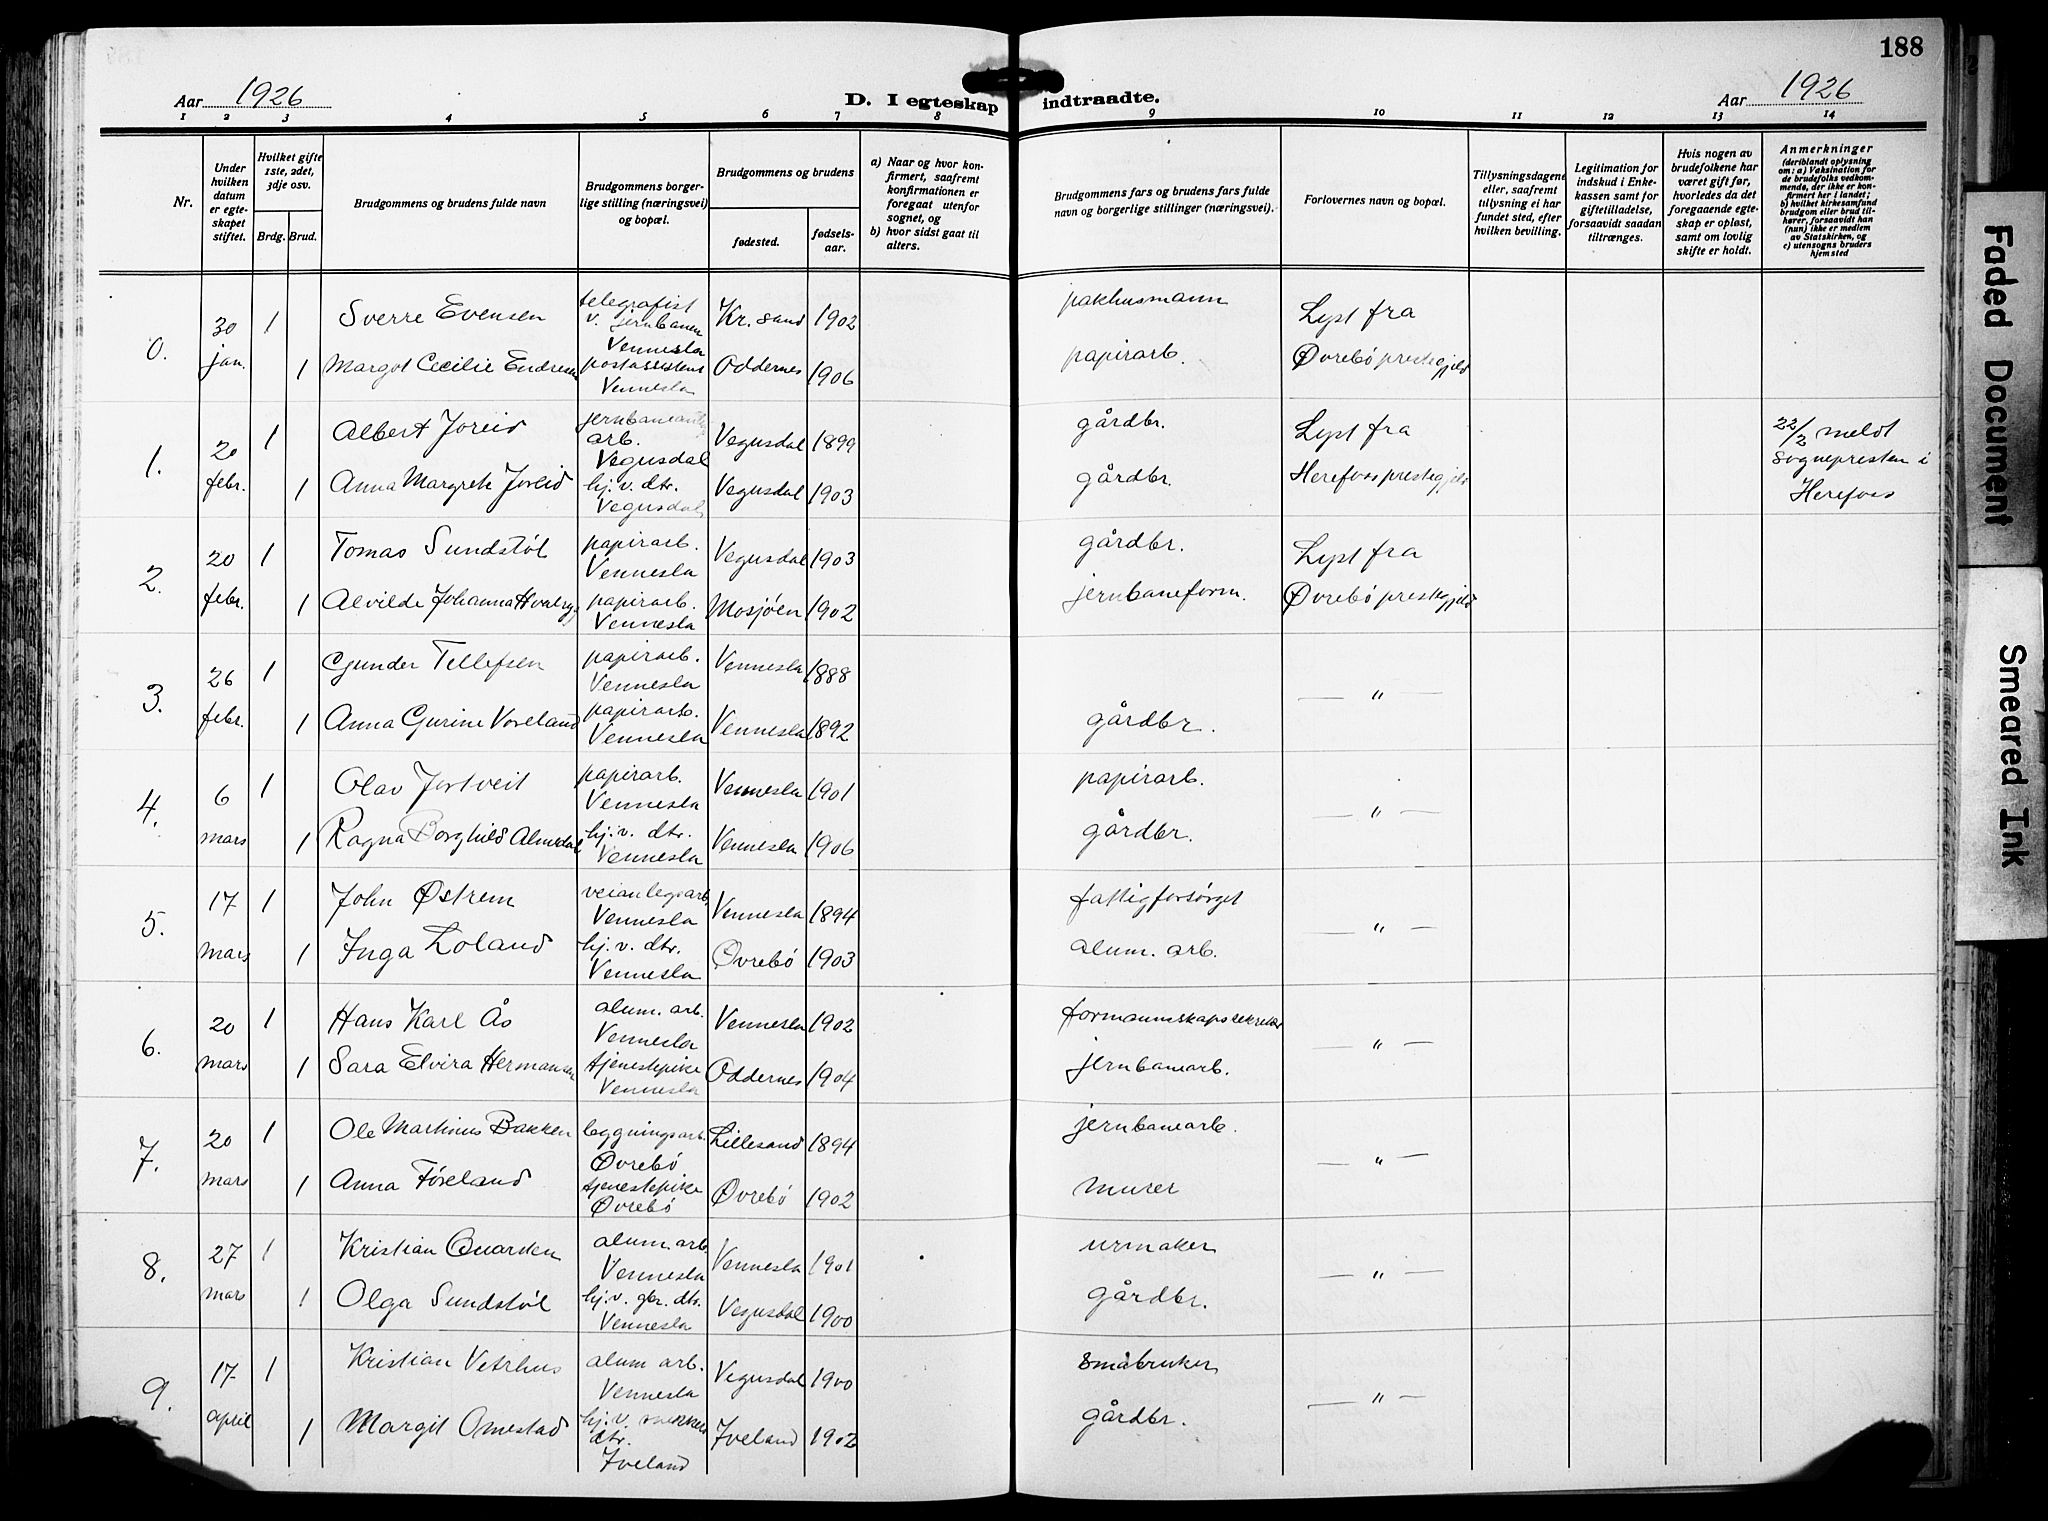 188
Aar 1926
D. I egteskap indtraadte.
Aar 1926
1 2 3 4 5 6 7 8 9 10 11 12 13 14
Nr.
Under hvilken datum er egteskapet stiftet.
Hvilket gifte 1ste, 2det, 3dje osv.
Brdg. Brud.
Brudgommens og brudens fulde navn
Brudgommens borgerlige stilling (næringsvei) og bopæl.
Brudgommens og brudens
fødested.
fødselsaar.
a) Naar og hvor konfirmert, saafremt konfirmationen er foregaat utenfor sognet, og
b) hvor sidst gaat til alters.
Brudgommens fars og brudens fars fulde navn og borgerlige stillinger (næringsvei).
Forlovernes navn og bopæl.
Tillysningsdagene eller, saafremt tillysning ei har fundet sted, efter hvilken bevilling.
Legitimation for indskud i Enkekassen samt for giftetilladelse, forsaavidt saadan tiltrænges.
Hvis nogen av brudefolkene har været gift før, hvorledes da det foregaaende egteskap er opløst, samt om lovlig skifte er holdt.
Anmerkninger
(deriblandt oplysning om: a) Vaksination for de brudefolks vedkommende, der ikke er konfirmert her i landet;
b) hvilket kirkesamfund brudgom eller brud tilhører, forsaavidt han (hun) ikke er medlem av Statskirken, og
c) utensogns bruders hjemsted
0. 30 jan. 1 Sverre Evensen telegrafist v. jernbanen Vennesla Kr. sand 1902 pakhusmann Lyst fra
1 Margot Cecilie Endresen postassistent Vennesla Oddernes 1906 papirarb. Øvrebö prestegjeld
1. 20 febr. 1 Albert Joreid arb. Vegusdal Vegusdal 1899 gårdbr. Lyst fra 22/2 meldt sognepresten i Herefoss
1 Anna Margrete Joreid hj. v. dtr. Vegusdal Vegusdal 1903 gårdbr. Herefoss prestegjeld
2. 20 febr. 1 Tomas Sundstøl papirarb. Vennesla Vegusdal 1903 gårdbr. Lyst fra
1 Alvilde Johanna papirarb. Vennesla Mosjøen 1902 jernbaneform. Øvrebö prestegjeld
3. 26 febr. 1 Gunder Tellefsen papirarb. Vennesla Vennesla 1888 — " —
1 Anna Gurine Voreland papirarb. Vennesla Vennesla 1892 gårdbr.
4. 6 mars 1 Olav Jortveit papirarb. Vennesla Vennesla 1901 papirarb. — " —
1 Ragna Borghild Almedal hj. v. dtr. Vennesla Vennesla 1906 gårdbr.
5. 17 mars 1 John Østrem veianlegsarb. Vennesla Vennesla 1894 fattigforsørget — " —
1 Inga Loland hj. v. dtr. Vennesla Øvrebö 1903 alum. arb.
6. 20 mars 1 Hans Karl Ås alum. arb. Vennesla Vennesla 1902 formannskapssekretær — " —
1 Sara Elvira Hermansen tjenestepike Vennesla Oddernes 1904 jernbanearb.
7. 20 mars 1 Ole Martinus Bakken leggningsarb. Øvrebö Lillesand 1894 jernbanearb. — " —
1 Anna Föreland tjenestepike Øvrebö Øvrebö 1902 murer
8. 27 mars 1 Kristian Quarden alum. arb. Vennesla Vennesla 1901 urmaker — " —
1 Olga Sundstøl hj. v. gbr. dtr. Vennesla Vegusdal 1900 gårdbr.
9. 17 april 1 Kristian Vetrhus alum arb. Vennesla Vegusdal 1900 småbruker — " —
1 Margit Omestad hj. v. dtr. Iveland Iveland 1902 gårdbr.
Faded Document
Smeared Ink